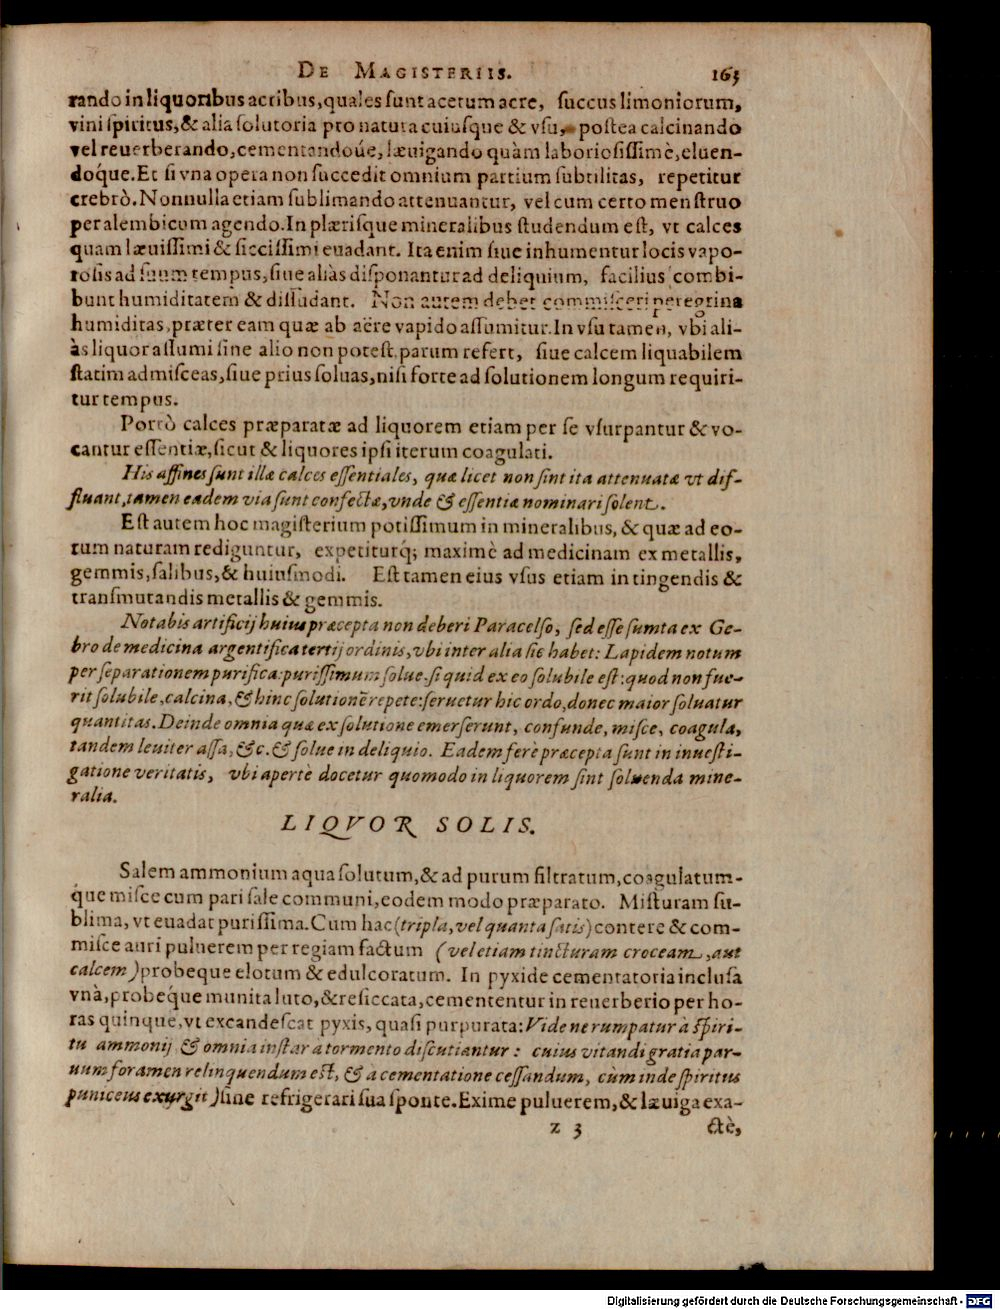 DE MAGISTERIIS. 163
rando in liquoribus acribus, quales sunt acetum acre, succus limoniorum,
vini spiritus, & alia solutoria pro natura cuiusque & vsu, postea calcinando
vel reuerberando, cementandoúe, læuigando quàm laboriosissimè, eluen-
doque. Et si vna opera non succedit omnium partium subtilitas, repetitur
crebrò. Nonnulla etiam sublimando attenuantur, vel cum certo menstruo
per alembicum agendo. In plærisque mineralibus studendum est, vt calces
quam læuissimi & siccissimi euadant. Ita enim siue inhumentur locis vapo-
rosis ad suum tempus, siue aliàs disponantur ad deliquium, facilius combi-
bunt humiditatem & diffludant. Non autem debet commisceri peregrina
humiditas, præter eam quæ ab aëre vapido assumitur. In vsu tamen, vbi ali-
às liquor assumi sine alio non potest, parum refert, siue calcem liquabilem
statim admisceas, siue prius soluas, nisi forte ad solutionem longum requiri-
tur tempus.
Porrò calces præparatæ ad liquorem etiam per se vsurpantur & vo-
cantur essentiæ, sicut & liquores ipsi iterum coagulati.
His affines sunt illæ calces essentiales, quæ licet non sint ita attenuatæ vt dif-
fluant, tamen eadem via sunt confectæ, vnde & essentiæ nominari solent.
Est autem hoc magisterium potissimum in mineralibus, & quæ ad eo-
rum naturam rediguntur, expetiturq́; maximè ad medicinam ex metallis,
gemmis, salibus, & huiusmodi. Est tamen eius vsus etiam in tingendis &
transmutandis metallis & gemmis.
Notabis artificij huius præcepta non deberi Paracelso, sed esse sumta ex Ge-
bro de medicina argentifica tertij ordinis, vbi inter alia sic habet: Lapidem notum
per separationem purifica: purissimum solue. si quid ex eo solubile est: quod non fue-
rit solubile, calcina, & hinc solutionē repete: seruetur hic ordo, donec maior soluatur
quantitas. Deinde omnia quæ ex solutione emerserunt, confunde, misce, coagula,
tandem leuiter assa, &c. & solue in deliquio. Eadem ferè præcepta sunt in inuesti-
gatione veritatis, vbi apertè docetur quomodo in liquorem sint soluenda mine-
ralia.
LIQVOR SOLIS.
Salem ammonium aqua solutum, & ad purum filtratum, coagulatum-
que misce cum pari sale communi, eodem modo præparato. Misturam su-
blima, vt euadat purissima. Cum hac (tripla, vel quanta satis) contere & com-
misce auri puluerem per regiam factum (vel etiam tincturam croceam, aut
calcem) probeque elotum & edulcoratum. In pyxide cementatoria inclusa
vnà, probeque munita luto, & resiccata, cemententur in reuerberio per ho-
ras quinque, vt excandescat pyxis, quasi purpurata: Vide ne rumpatur à spiri-
tu ammonij & omnia instar à tormento discutiantur: cuius vitandi gratia par-
uum foramen relinquendum est, & à cementatione cessandum, cùm inde spiritus
puniceus exurgit) sine refrigerari sua sponte. Exime puluerem, & læuiga exa-
z 3 ctè,
Digitalisierung gefördert durch die Deutsche Forschungsgemeinschaft - DFG